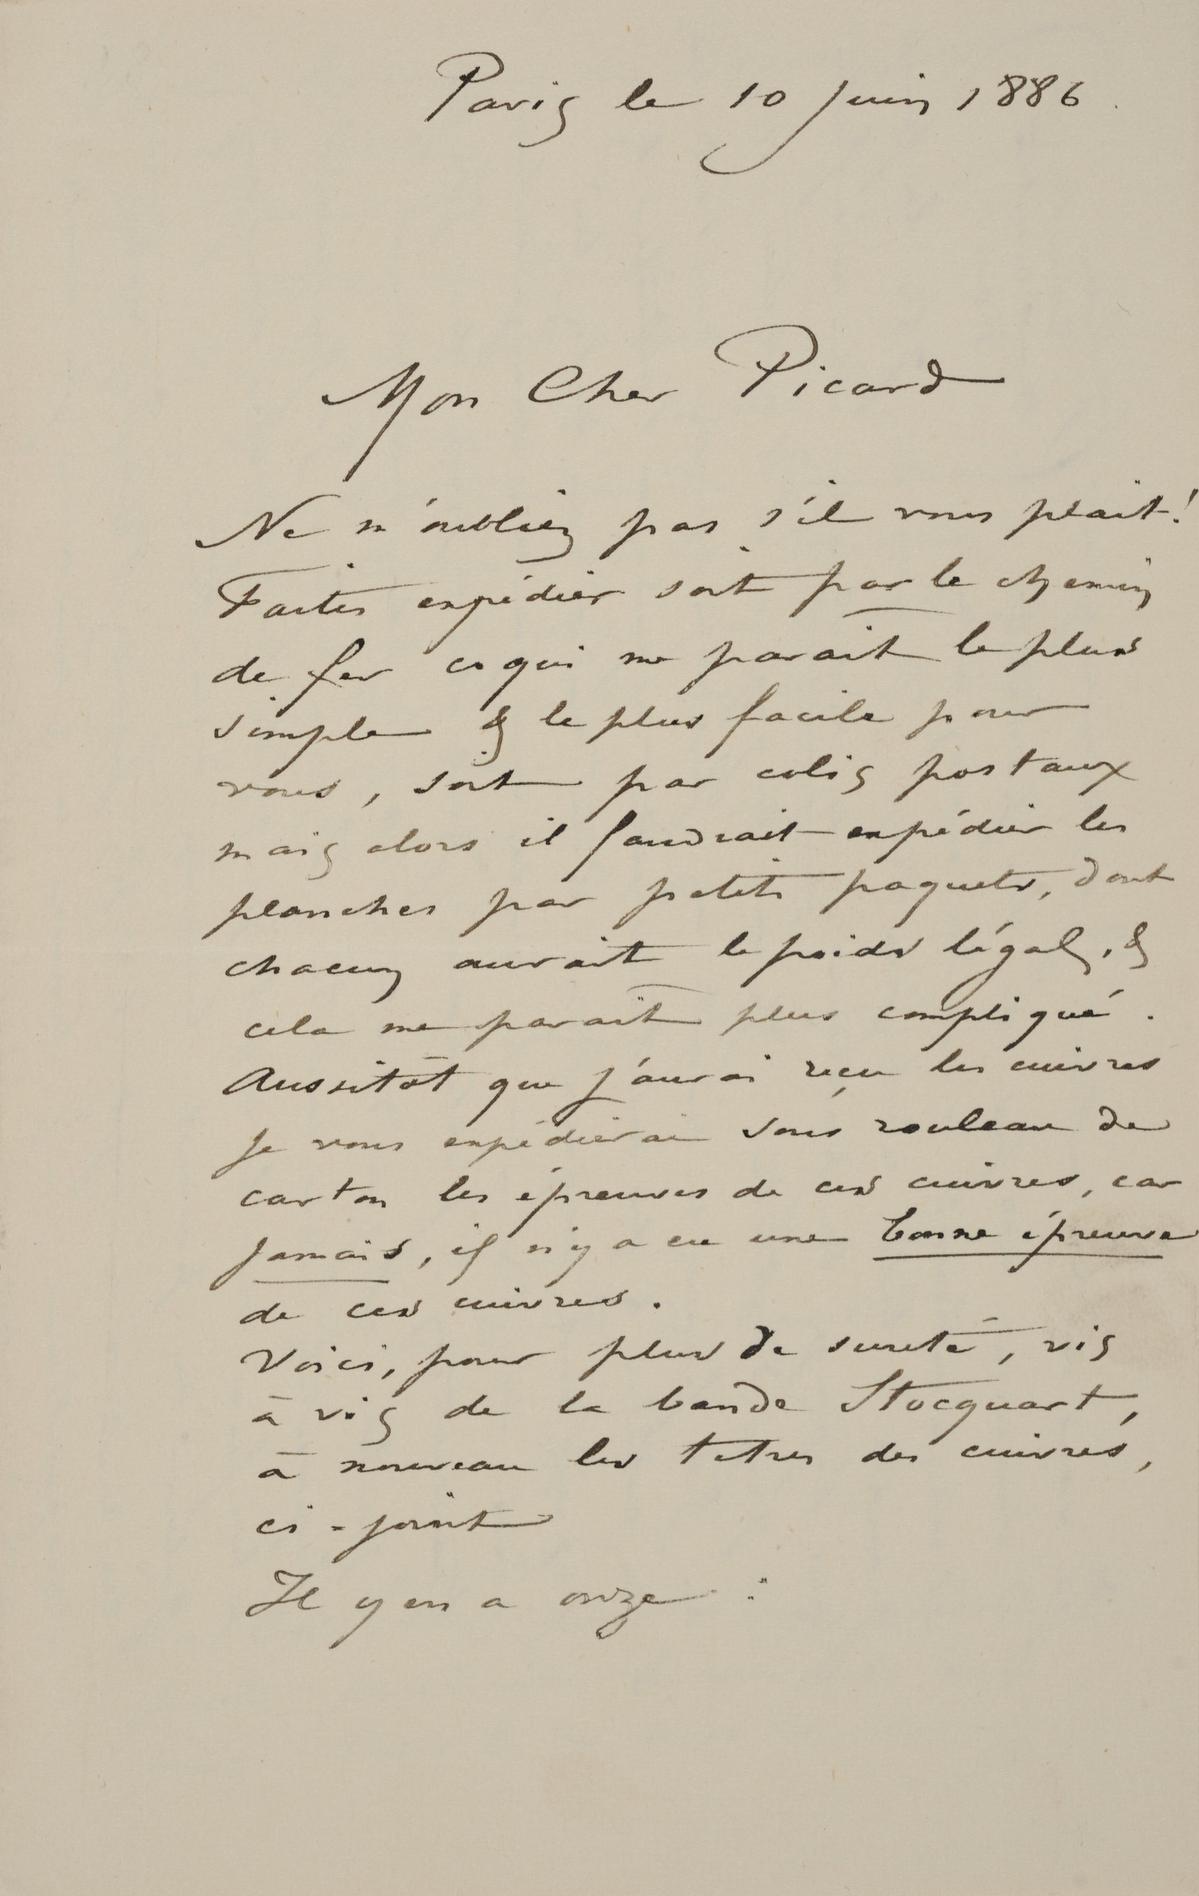 Paris le 10 Juin 1886.
Mon Cher Picard
Ne m'oubliez pas s'il vous plait!
Faites expédier soit par le chemin
de fer ce qui me parait le plus
simple & le plus facile pour
vous, soit par colis postaux
mais alors il faudrait expédier les
planches par petits paquets, dont
chacun aurait le poids légal, &
cela me parait plus compliqué.
Aussitôt que j'aurai reçu les cuivres
je vous expédierai sous rouleau de
carton les épreuves de ces cuivres, car
jamais, il n'y a eu une bonne épreuve
de ces cuivres.
Voici, pour plus de sureté, vis
à vis de la bande Stocquart,
à nouveau les titres des cuivres,
ci-joint
Il y en a onze :